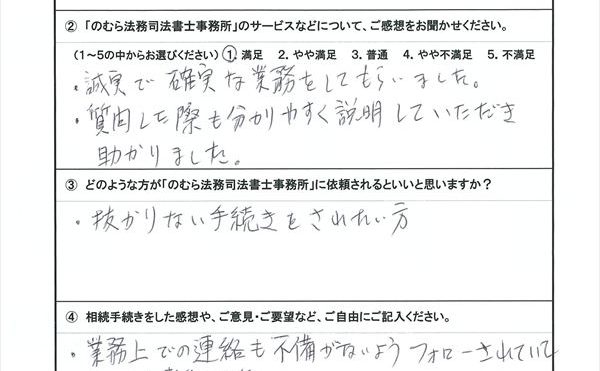 ② 「のむら法務司法書士事務所」のサービスなどについて、ご感想をお聞かせください。
(1〜5の中からお選びください) ①. 満足 2. やや満足 3. 普通 4. やや不満足 5. 不満足
・誠実で確実な業務をしてもらいました。
・質問した際も分かりやすく説明していただき
助かりました。
③ どのような方が「のむら法務司法書士事務所」に依頼されるといいと思いますか?
・抜かりない手続きをされたい方
④ 相続手続きをした感想や、ご意見・ご要望など、ご自由にご記入ください。
・業務上での連絡も不備がないようフォローされていて